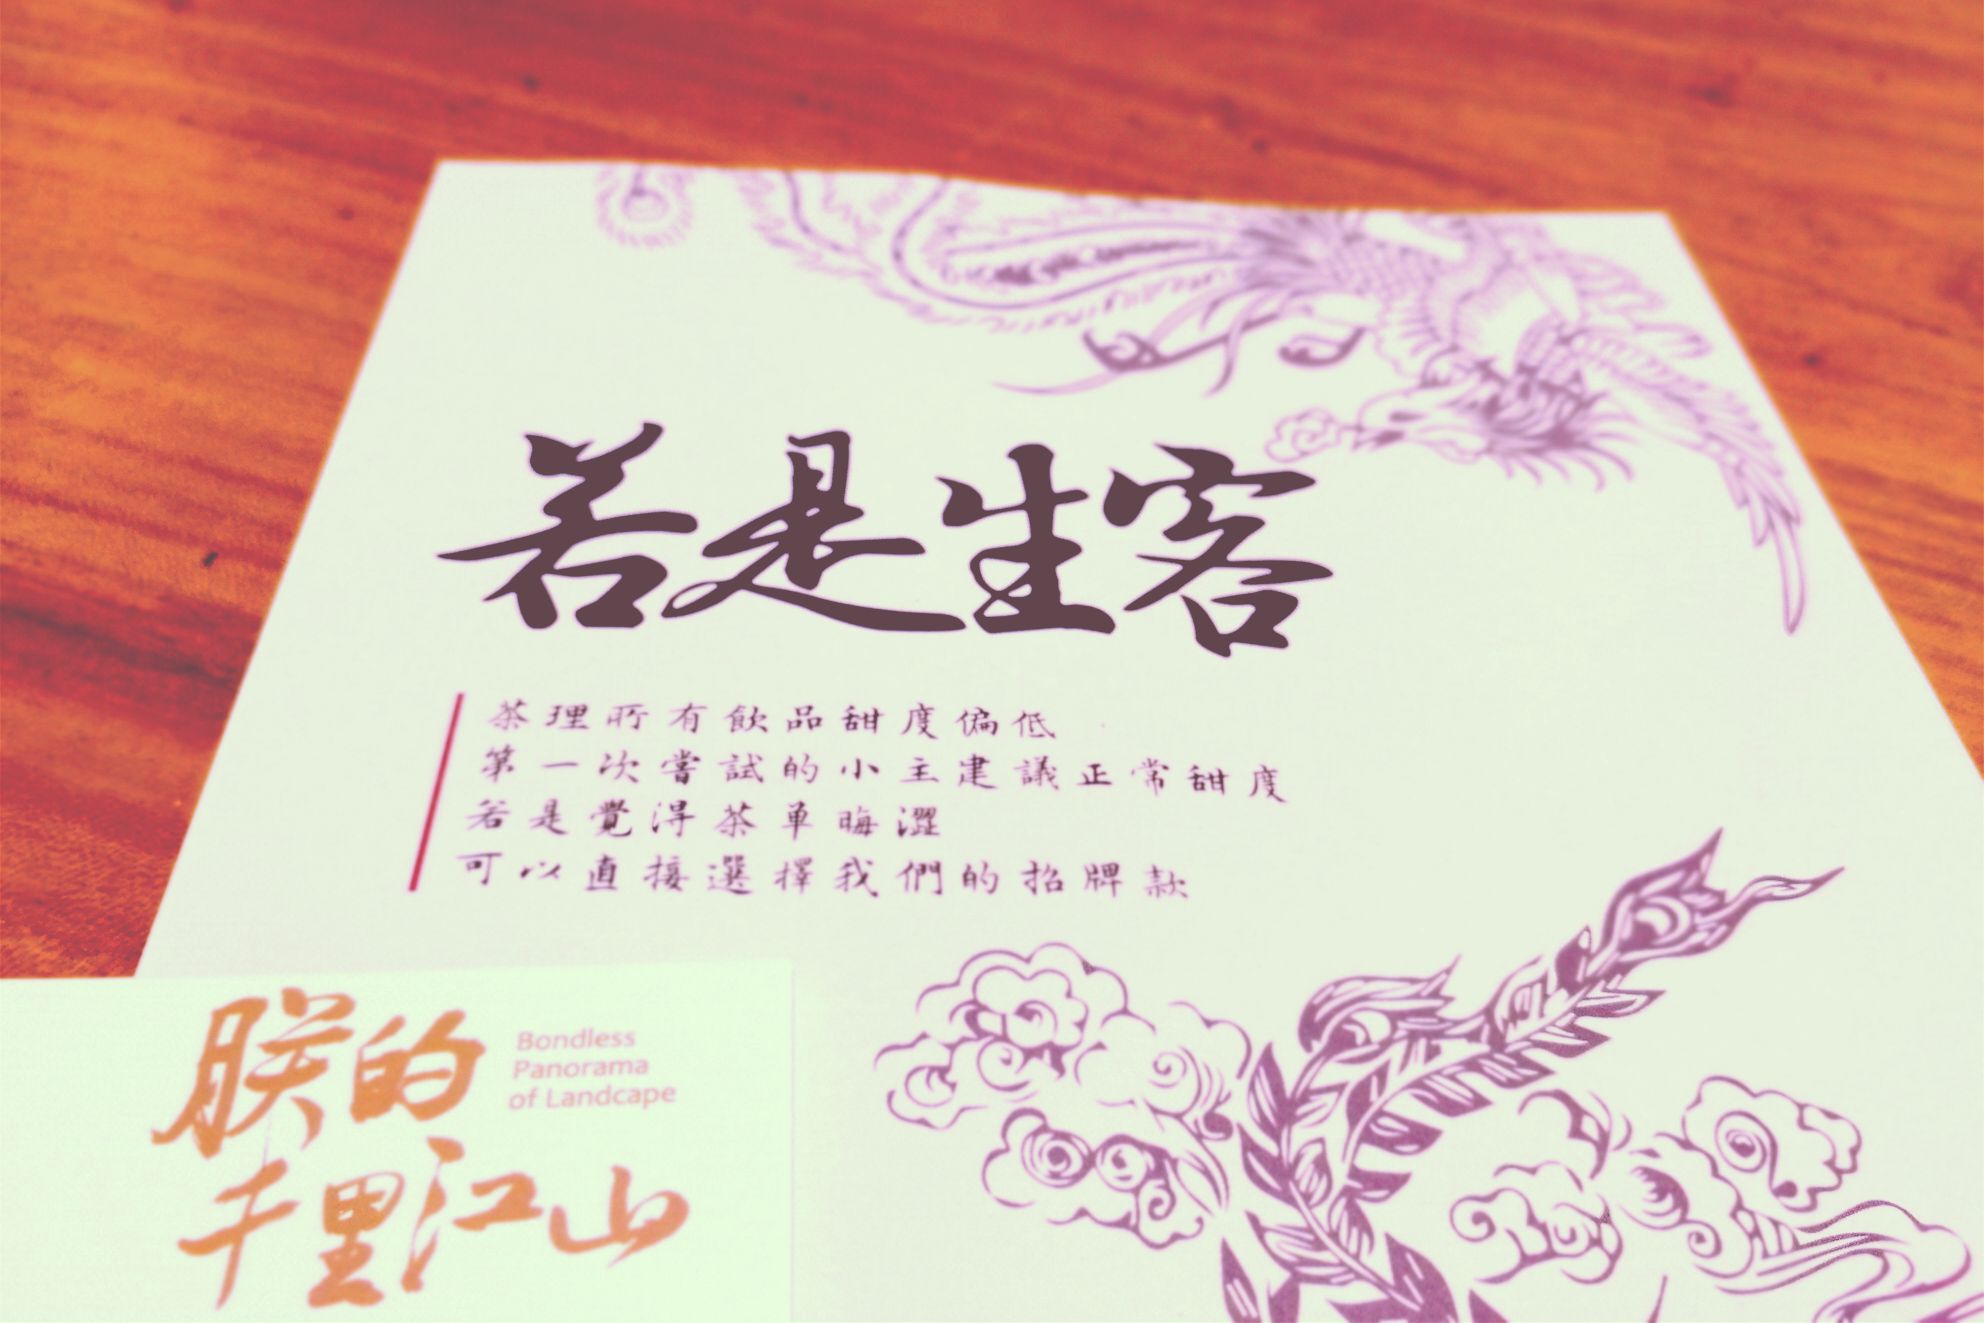 若是生客
茶理所有飲品甜度偏低
第一次嘗試的小主建議正常甜度
若是覺得茶单晦澀
可以直接選擇我們的招牌款
朕的
千里江山
Bondless
Panorama
of Landcape